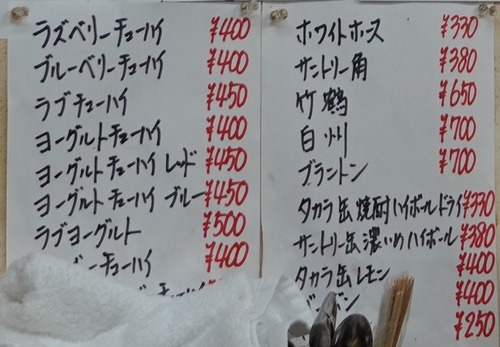 ラズベリーチューハイ ¥400
ブルーベリーチューハイ ¥400
ラブチューハイ ¥450
ヨーグルトチューハイ ¥400
ヨーグルトチューハイ レッド ¥450
ヨーグルトチューハイ ブルー ¥450
ラブヨーグルト ¥500
ビーチューハイ ¥400
チューハイ
ホワイトホース ¥330
サントリー角 ¥380
竹鶴 ¥650
白州 ¥700
ブラントン ¥700
タカラ缶焼酎ハイボールドライ ¥330
サントリー缶濃いめハイボール ¥380
タカラ缶レモン ¥400
¥400
¥250